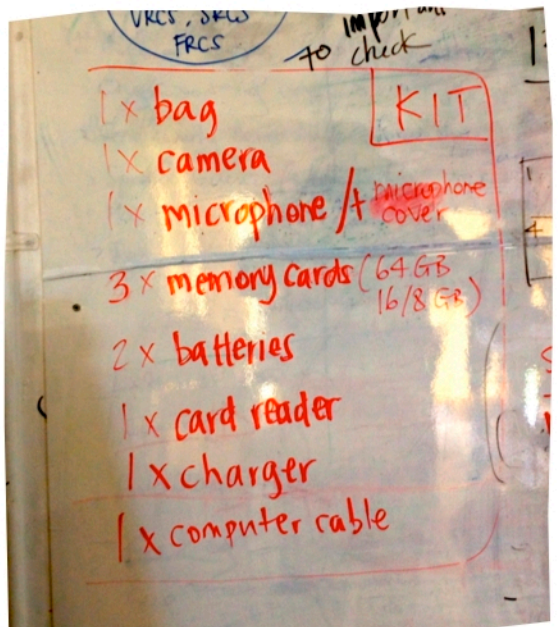 VRCS, SRCS
FRCS
important
to check
KIT
1 x bag
1 x camera
1 x microphone / + microphone cover
3 x memory cards (64 GB
16/8 GB)
2 x batteries
1 x card reader
1 x charger
1 x computer cable